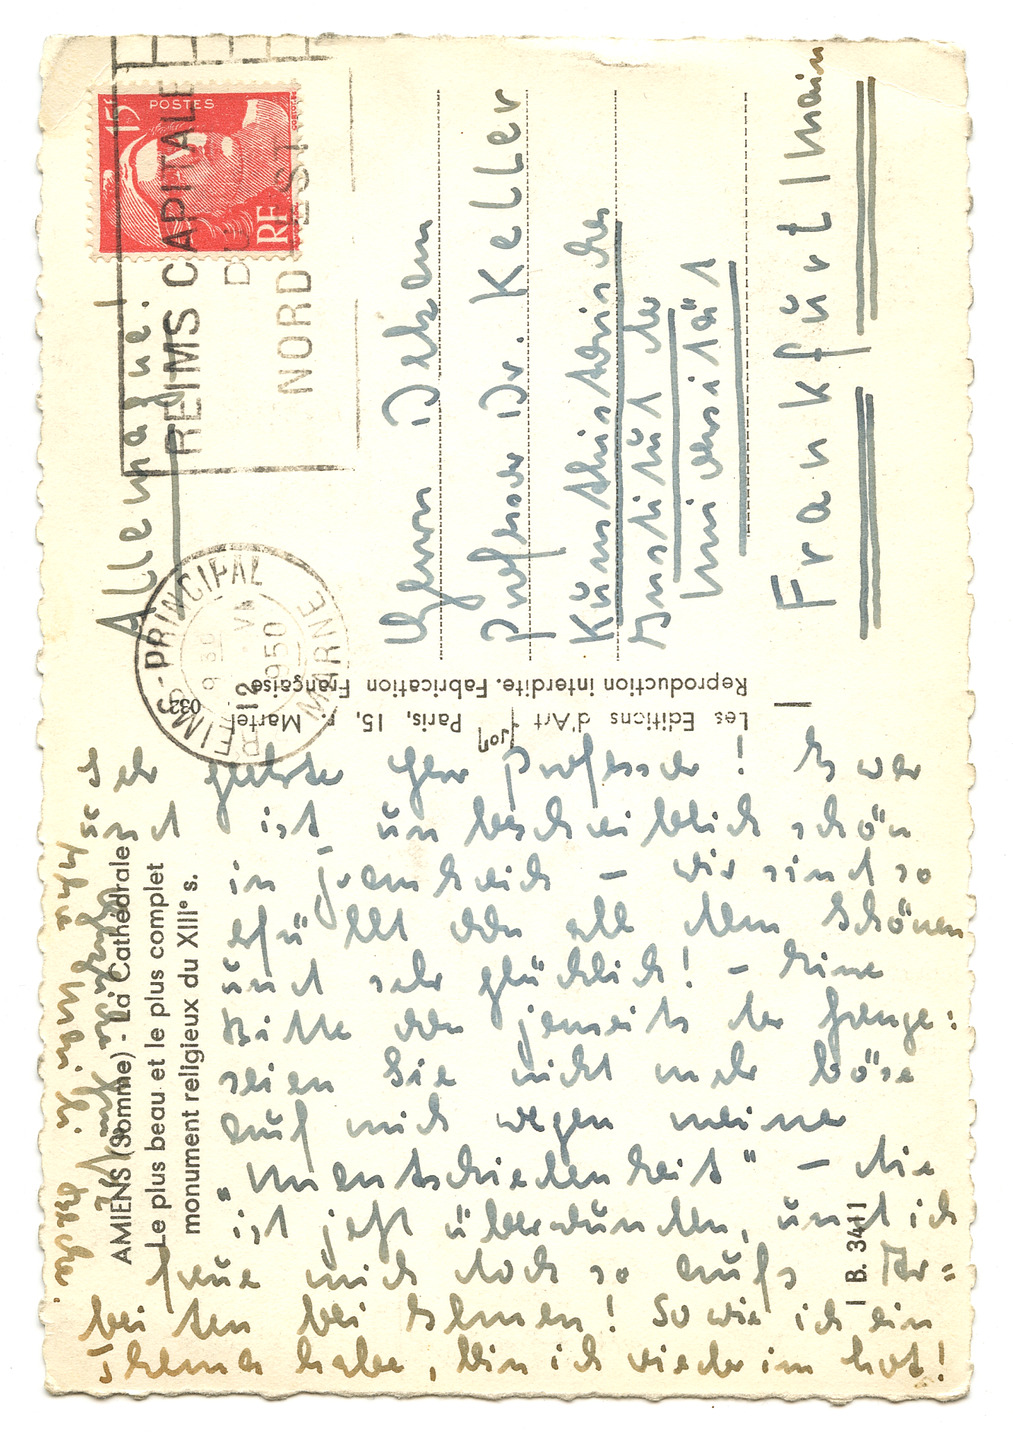 POSTES
15F
RF
REIMS CAPITALE
DU
NORD EST
REIMS-PRINCIPAL
9 30
12 VI
1950
MARNE
032
Allemagne!
Herrn Dekan
Professor Dr. Keller
Kunsthistorisches
Institut der
Universität
Frankfurt/Main
Les Editions d'Art
Paris, 15, r. Martel
Reproduction interdite. Fabrication Française
AMIENS (Somme) - La Cathédrale
Le plus beau et le plus complet
monument religieux du XIIIe s.
B. 3411
Sehr geehrter Herr Professor! Es war
und ist unbeschreiblich schön
in Frankreich – wir sind so
erfüllt von all dem Schönen
und sehr glücklich! – Eine
Bitte von jenseits der Grenze:
seien Sie nicht mehr böse
auf mich wegen meiner
„Unentschiedenheit" – die
ist jetzt überwunden, und ich
freue mich doch so aufs Ar=
beiten bei Ihnen! Sowie ich ein
Thema habe, bin ich wieder im Lot!
Ihre